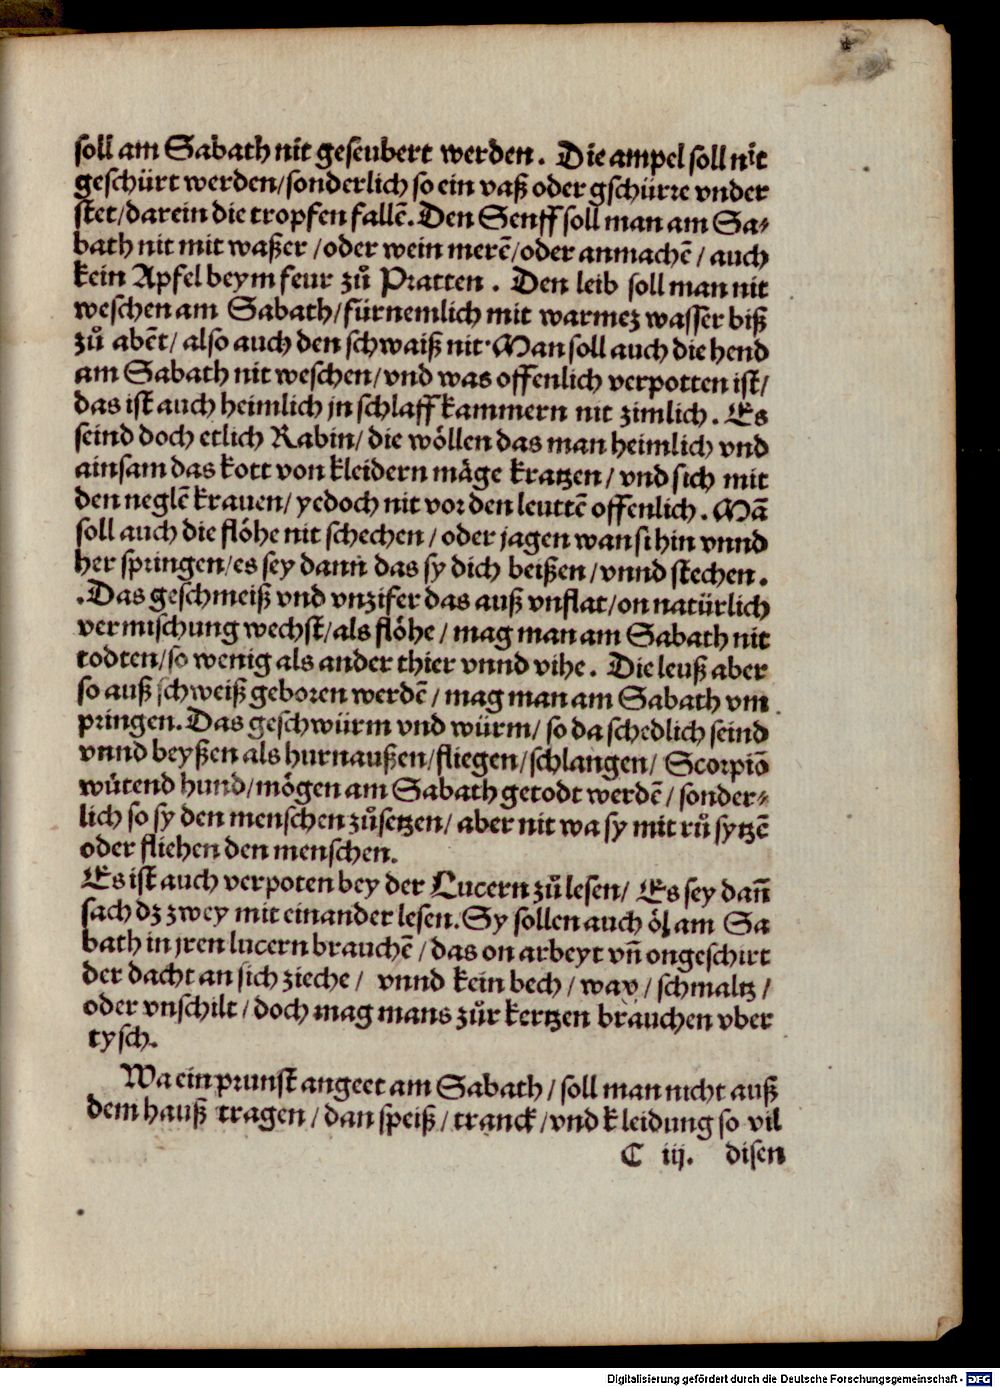 soll am Sabath nit geseubert werden. Die ampel soll nit
geschürt werden/sonderlich so ein vaß oder gschürre vnder
stet/darein die tropfen fallē. Den Senff soll man am Sa⸗
bath nit mit waßer/oder wein merē/oder anmachē/auch
kein Apfel beym feur zů Pratten. Den leib soll man nit
weschen am Sabath/fürnemlich mit warmeꝫ wasser biß
zů abēt/also auch den schwaiß nit. Man soll auch die hend
am Sabath nit weschen/vnd was offenlich verpotten ist/
das ist auch heimlich jn schlaff kammern nit zimlich. Es
seind doch etlich Rabin/die wöllen das man heimlich vnd
ainsam das kott von kleidern mäge kratzen/vnd sich mit
den neglē krauen/yedoch nit vor den leuttē offenlich. Mā
soll auch die flöhe nit schechen/oder jagen wan si hin vnnd
her springen/es sey dann das sy dich beißen/vnnd stechen.
.Das geschmeiß vnd vnzifer das auß vnflat/on natürlich
vermischung wechst/als flöhe/mag man am Sabath nit
todten/so wenig als ander thier vnnd vihe. Die leuß aber
so auß schweiß geboren werdē/mag man am Sabath vm
pringen. Das geschwürm vnd würm/so da schedlich seind
vnnd beyßen als hurnaußen/fliegen/schlangen/Scorpiō
wütend hund/mögen am Sabath getodt werdē/sonder⸗
lich so sy den menschen zůsetzen/aber nit wa sy mit rů sytzē
oder fliehen den menschen.
Es ist auch verpoten bey der Lucern zů lesen/Es sey dañ
sach dz zwey mit einander lesen. Sy sollen auch öl am Sa
bath in jren lucern brauchē/das on arbeyt vñ ongeschirt
der dacht an sich zieche/vnnd kein bech/wax/schmaltz/
oder vnschilt/doch mag mans zůr kertzen brauchen vber
tysch.
Wa ein prunst angeet am Sabath/soll man nicht auß
dem hauß tragen/dan speiß/tranck/vnd kleidung so vil
C iij. disen
Digitalisierung gefördert durch die Deutsche Forschungsgemeinschaft - DFG